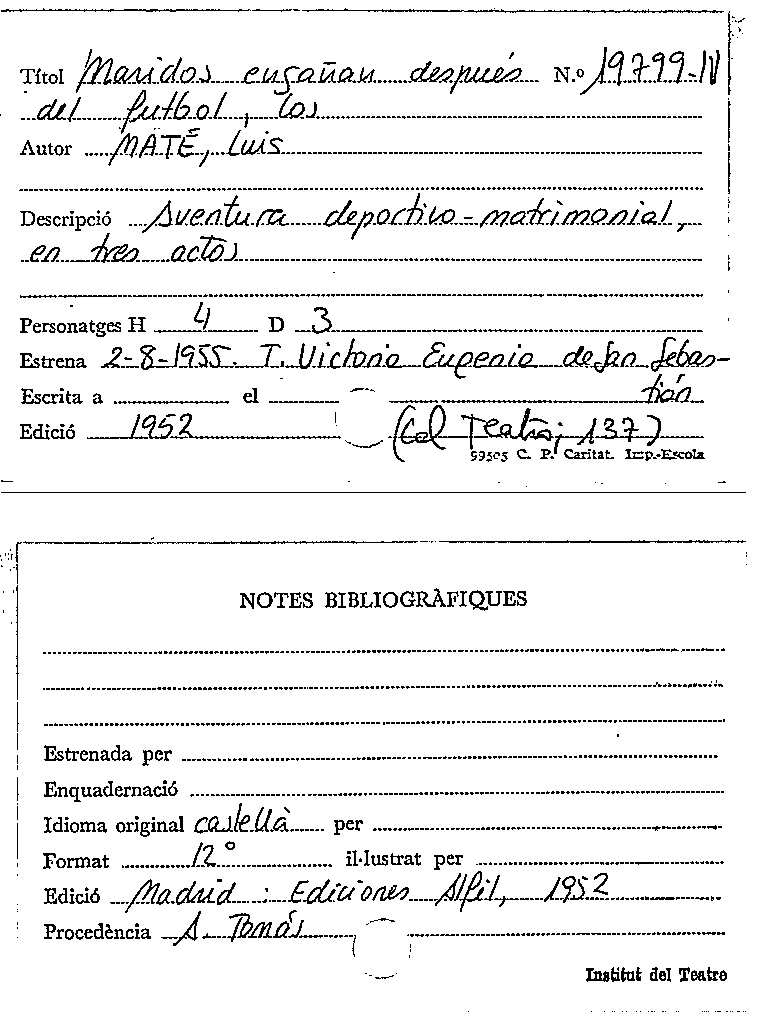 Títol Maridos engañan después N.º 19799-IV
del futbol, los
Autor MATÉ, Luis
Descripció Aventura deportivo-matrimonial,
en tres actos
Personatges H 4 D 3
Estrena 2-8-1955. T. Victoria Eugenia de San Sebas-
tián
Escrita a el
Edició 1952 (Col Teatro; 137)
99505 C. P. Caritat. Imp.-Escola
NOTES BIBLIOGRÀFIQUES
Estrenada per
Enquadernació
Idioma original castellà per
Format 12º il·lustrat per
Edició Madrid : Ediciones Alfil, 1952
Procedència A. Tomás
Institut del Teatre